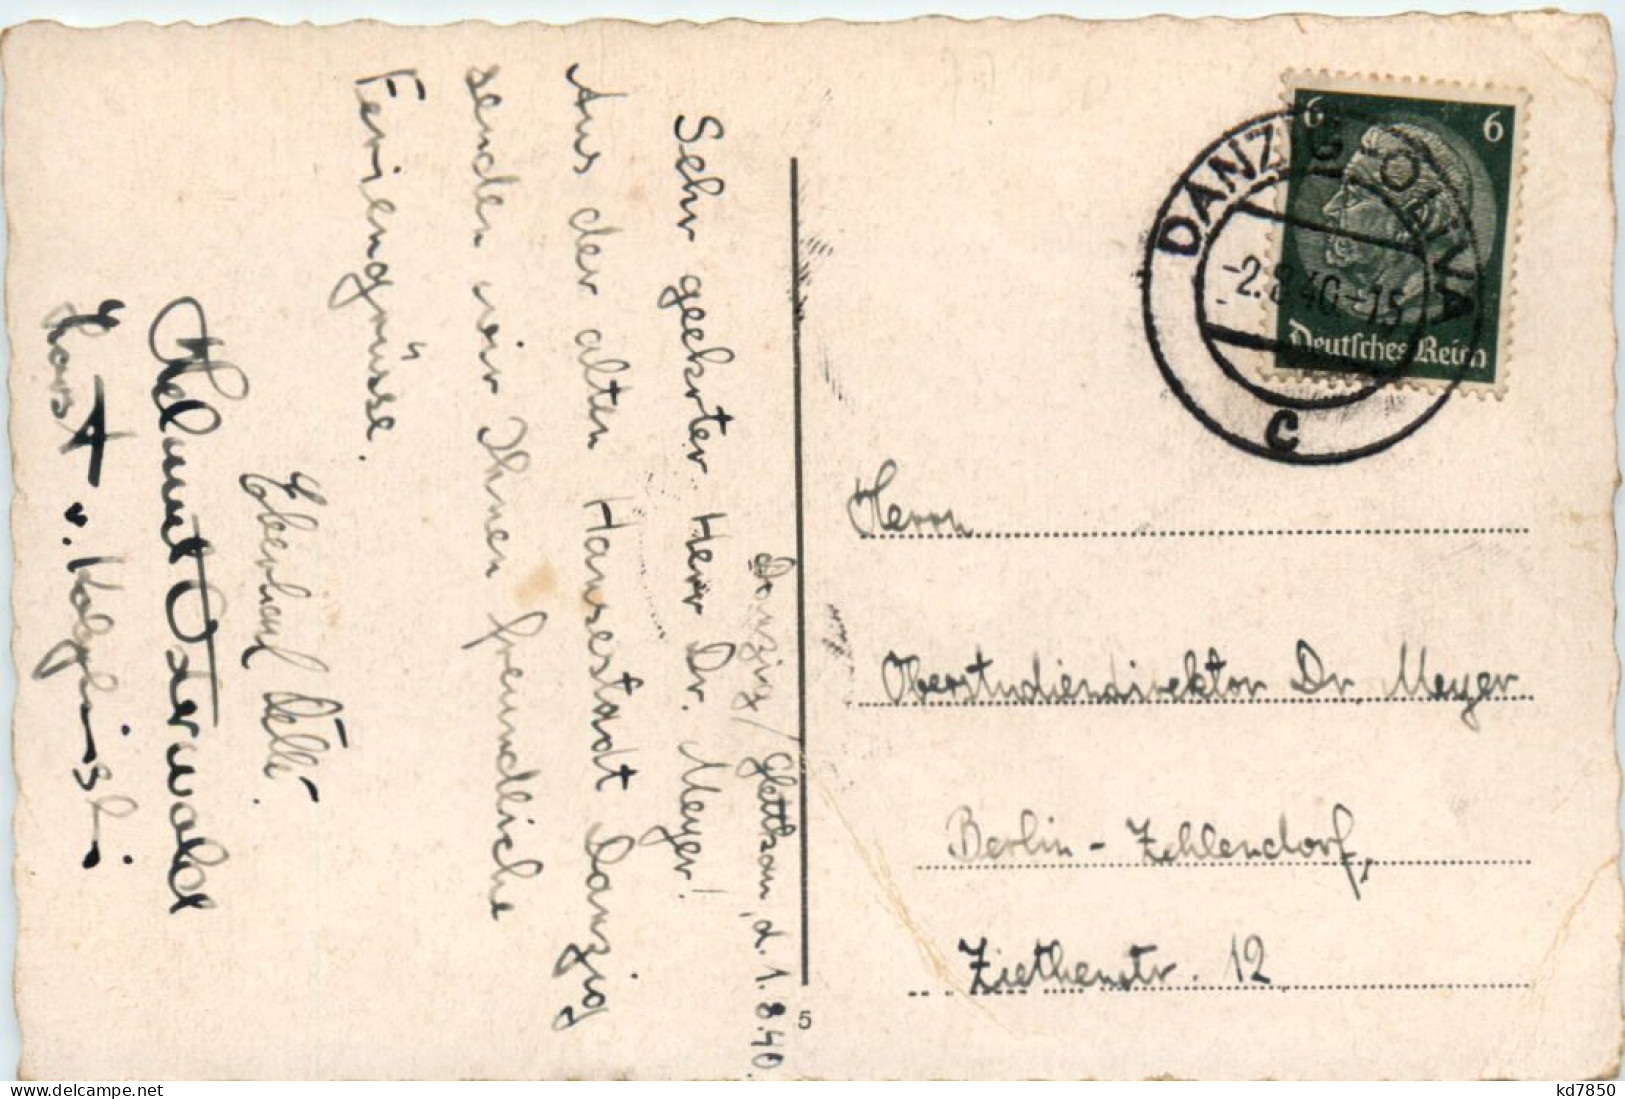 Danzig/Glettkau, d. 1.8.40.
Sehr geehrter Herr Dr. Meyer!
Aus der alten Hansestadt Danzig
senden wir Ihnen freundliche
Feriengrüsse.
Eberhard
Helmut Osterwald
Horst v.
6 6
Deutsches Reich
DANZIG-OLIVA
-2.8.40-15
c
Herrn
Oberstudiendirektor Dr. Meyer
Berlin-Zehlendorf,
Ziethenstr. 12
5
delcampe.net
kd7850